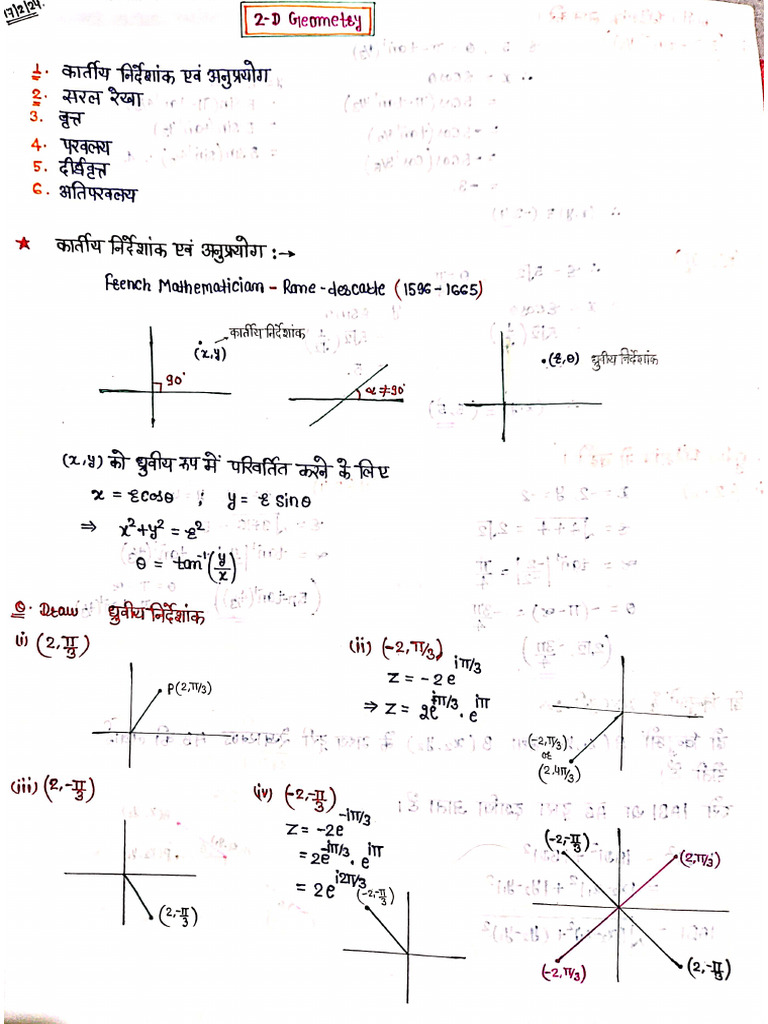 17/2/24.
2-D Geometry
1. कार्तीय निर्देशांक एवं अनुप्रयोग
2. सरल रेखा
3. वृत्त
4. परवलय
5. दीर्घवृत्त
6. अतिपरवलय
★ कार्तीय निर्देशांक एवं अनुप्रयोग :→
French Mathematician - Rane-descarte (1596-1665)
कार्तीय निर्देशांक
(x,y)
90°
α≠90°
(r,θ) ध्रुवीय निर्देशांक
(x,y) को ध्रुवीय रूप में परिवर्तित करने के लिए
x = rcosθ ; y = r sinθ
⇒ x²+y² = r²
θ = tan⁻¹(y/x)
Q. Draw ध्रुवीय निर्देशांक
(i) (2, π/3)
P(2,π/3)
(ii) (-2, π/3)
z = -2e^{iπ/3}
⇒ z = 2e^{iπ/3} · e^{iπ}
(-2,π/3)
or
(2,4π/3)
(iii) (2, -π/3)
(2,-π/3)
(iv) (-2, -π/3)
z = -2e^{-iπ/3}
= 2e^{-iπ/3} · e^{iπ}
= 2e^{i2π/3}
(-2,-π/3)
(-2,-π/3)
(2,π/3)
(-2,π/3)
(2,-π/3)